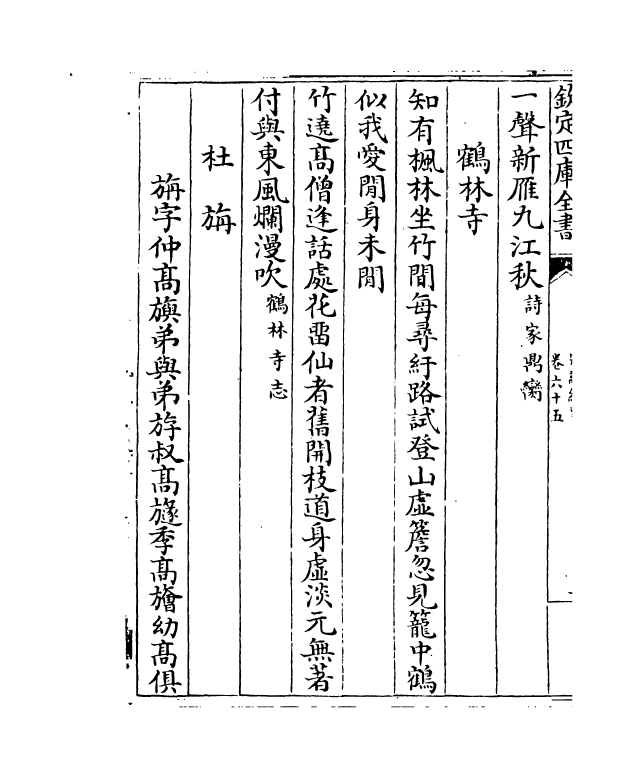 欽定四庫全書
卷六十五
一聲新雁九江秋詩家鼎臠
鶴林寺
知有楓林坐竹間每尋紆路試登山虛簷忽見籠中鶴
似我愛閒身未閒
竹遶髙僧逢話處花畱仙者舊開枝道身虛淡元無著
付與東風爛漫吹鶴林寺志
杜旃
旃字仲髙旟弟與弟斿叔髙旞季髙旝幼髙俱